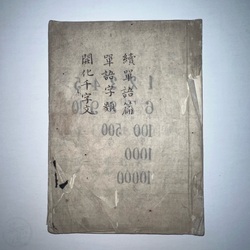 續單語篇
單語字類
開化千字文
100 500
1000
10000